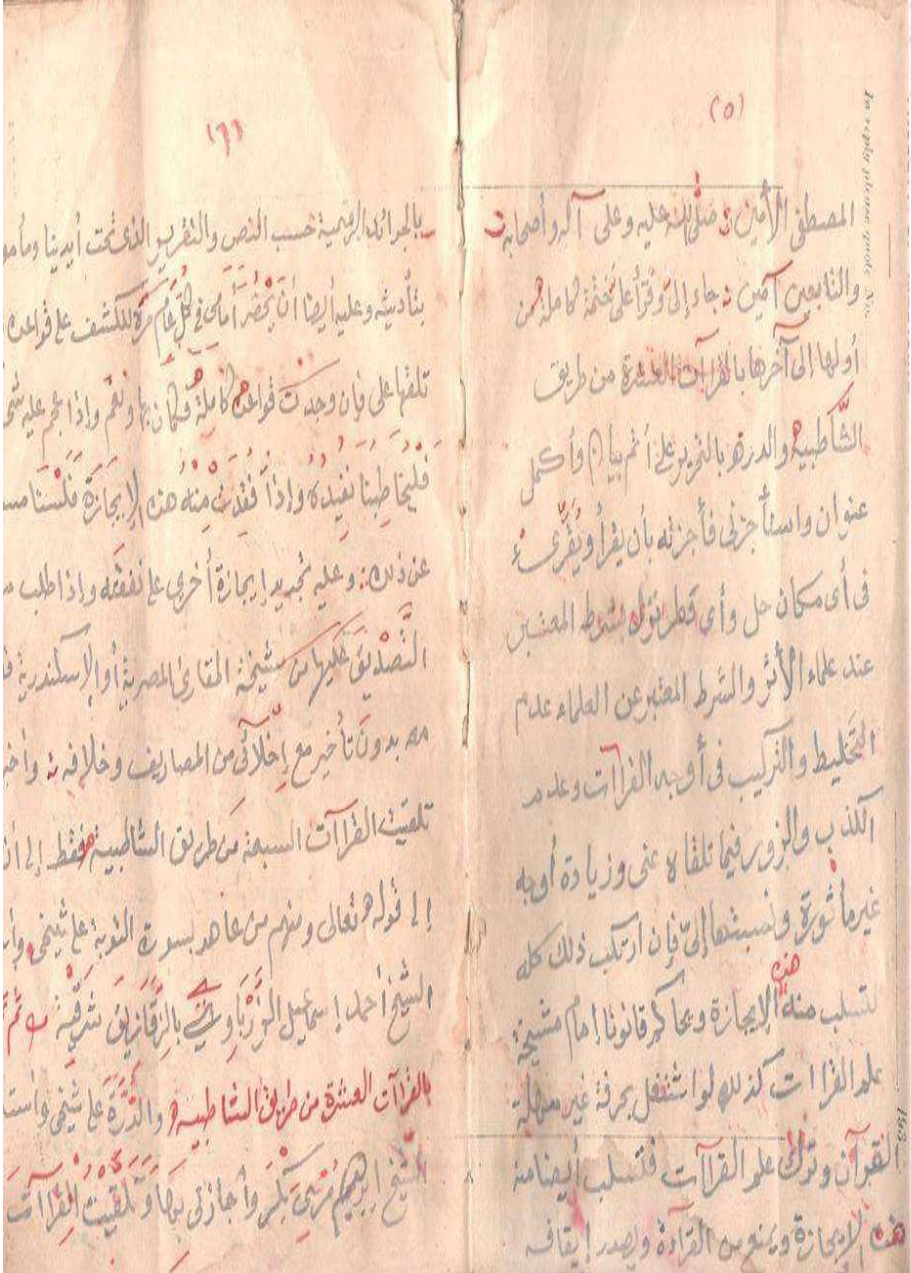 (٥)
المصطفى الأمين صلى الله عليه وعلى آله وأصحابه
والتابعين آمين جاء إلىّ وقرأ علىّ ختمة كاملة من
أولها إلى آخرها بالقراآت العشرة من طريق
الشَّاطبية والدرة بالتحرير على أتم بيان وأكمل
عنوان واستأجزنى فأجزته بأن يقرأ ويُقرِىء
فى أى مكان حل وأى قطر نزل بشرط المعتبر
عند علماء الأثر والشرط المعتبر عن العلماء عدم
التخليط والتركيب فى أوجه القراآت وعدم
الكذب والزور فيما تلقاه عنى وزيادة أوجه
غير مأثورة ونسبتها إلىّ فإن ارتكب ذلك كله
تسلب منه هذه الإجازة ويحاكم قانونا إمام مشيخة
علم القراآت كذلك لو اشتغل بحرفة غير
القرآن وترك علم القراآت فتسلب أيضا منه
هذه الإجازة ويمنع من القراءة ويصدر إيقافه
(٦)
بالجرائد الرسمية حسب النص والتقرير الذى تحت أيدينا
بتأديته وعليه أيضا أن يَحْضُرَ أمامى فى كل عام مَرّة للكشف على قواعده
تلقها على فإن وجدت قواعده كاملة فكان بها ونعم وإذا عليه
فليخاطبنا نفيده وإذا فُقِدَتْ مِنْهُ هذه الإجازة فلسنا
عن ذلك وعليه تجديد إجازة أخرى على نفقته وإذا طلب
التَّصْدِيقَ عليها من مشيخة المقارئ المصرية أو الإسكندرية
بدون تأخير مع إخلائى من المصاريف وخلافه
تلقيت القراآت السبعة من طريق الشاطبية فقط إلى
إلى قوله تعالى ومنهم من عاهد بسورة التوبة على شيخى
الشيخ أحمد إسماعيل بالزقازيق شرقية ثم
بالقراآت العشرة من طريق الشاطبية والدُّرَّة على شيخى
الشيخ إبرهيم مُرْسِى بَكْر وأجازنى بها وتلقيت القراآت
In reply please quote No.
193